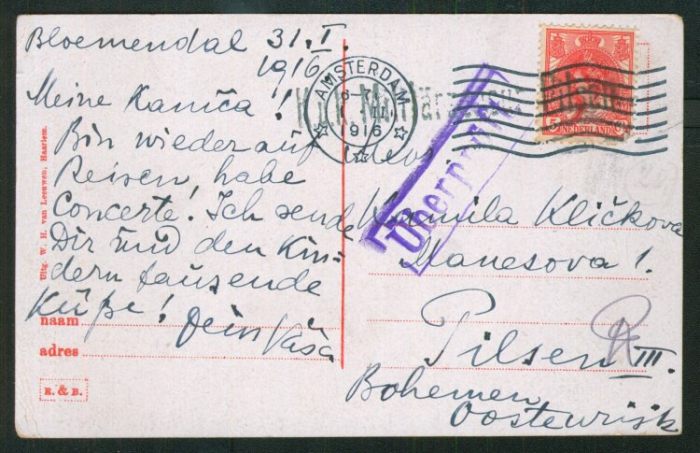 Bloemendal 31.I.
1916
Meine Kamiča!
Bin wieder auf
Reisen, habe
Concerte! Ich sende
Dir und den Kin-
dern tausende
Küße!
Dein Váša
naam
adres
Uitg. W. H. van Leeuwen, Haarlem.
R. & B.
AMSTERDAM
1916
K.u.k. Militärzensur Pilsen
Überprüft
NEDERLAND
Ludmila Kličkova
Manesova 1.
Pilsen III.
Bohemen
Oostenrijk